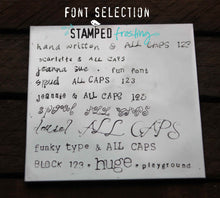 FONT SELECTION
STAMPED frosting
hand written & ALL CAPS 123
scarlette & ALL CAPS
jeanna sue • fun font
spud ALL CAPS 123
jeannie & ALL CAPS 123
ALL CAPS
ALL CAPS
funky type & ALL CAPS
BLOCK 123 • huge • playground